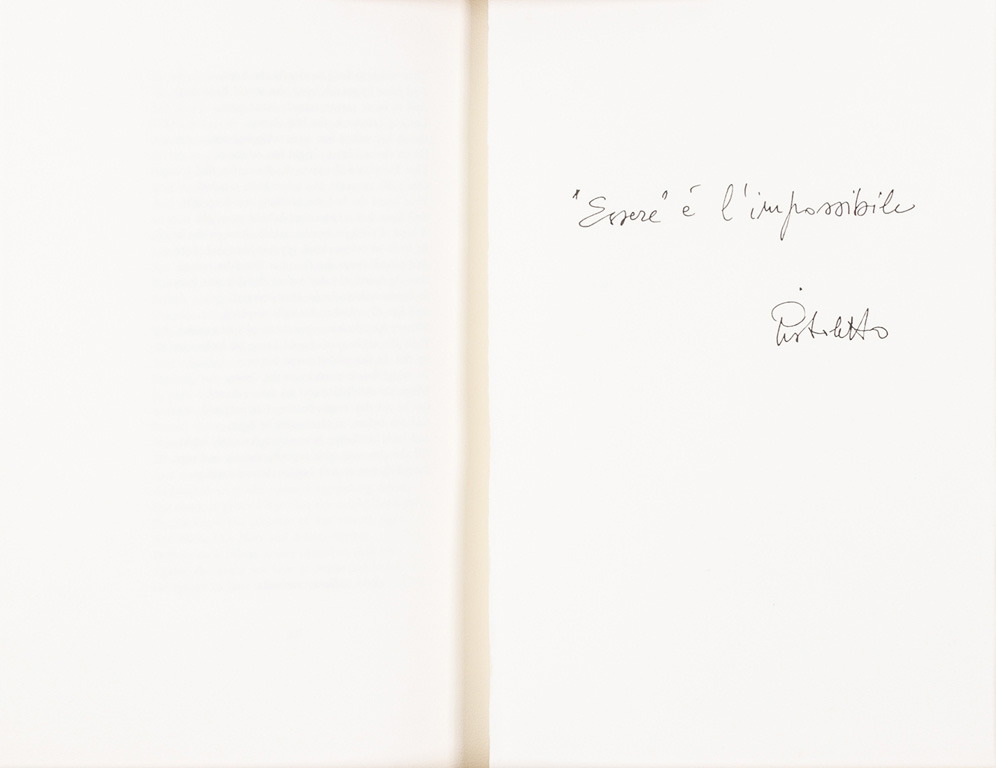 "Essere" é l'impossibile
Pistoletto